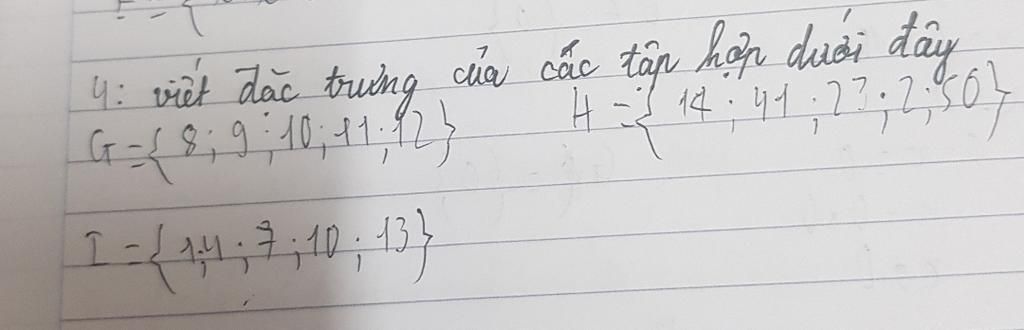 4: viết đặc trưng của các tập hợp dưới đây
G={8;9;10;11;12} H={14;41;23;2;50}
I={1;4;7;10;13}